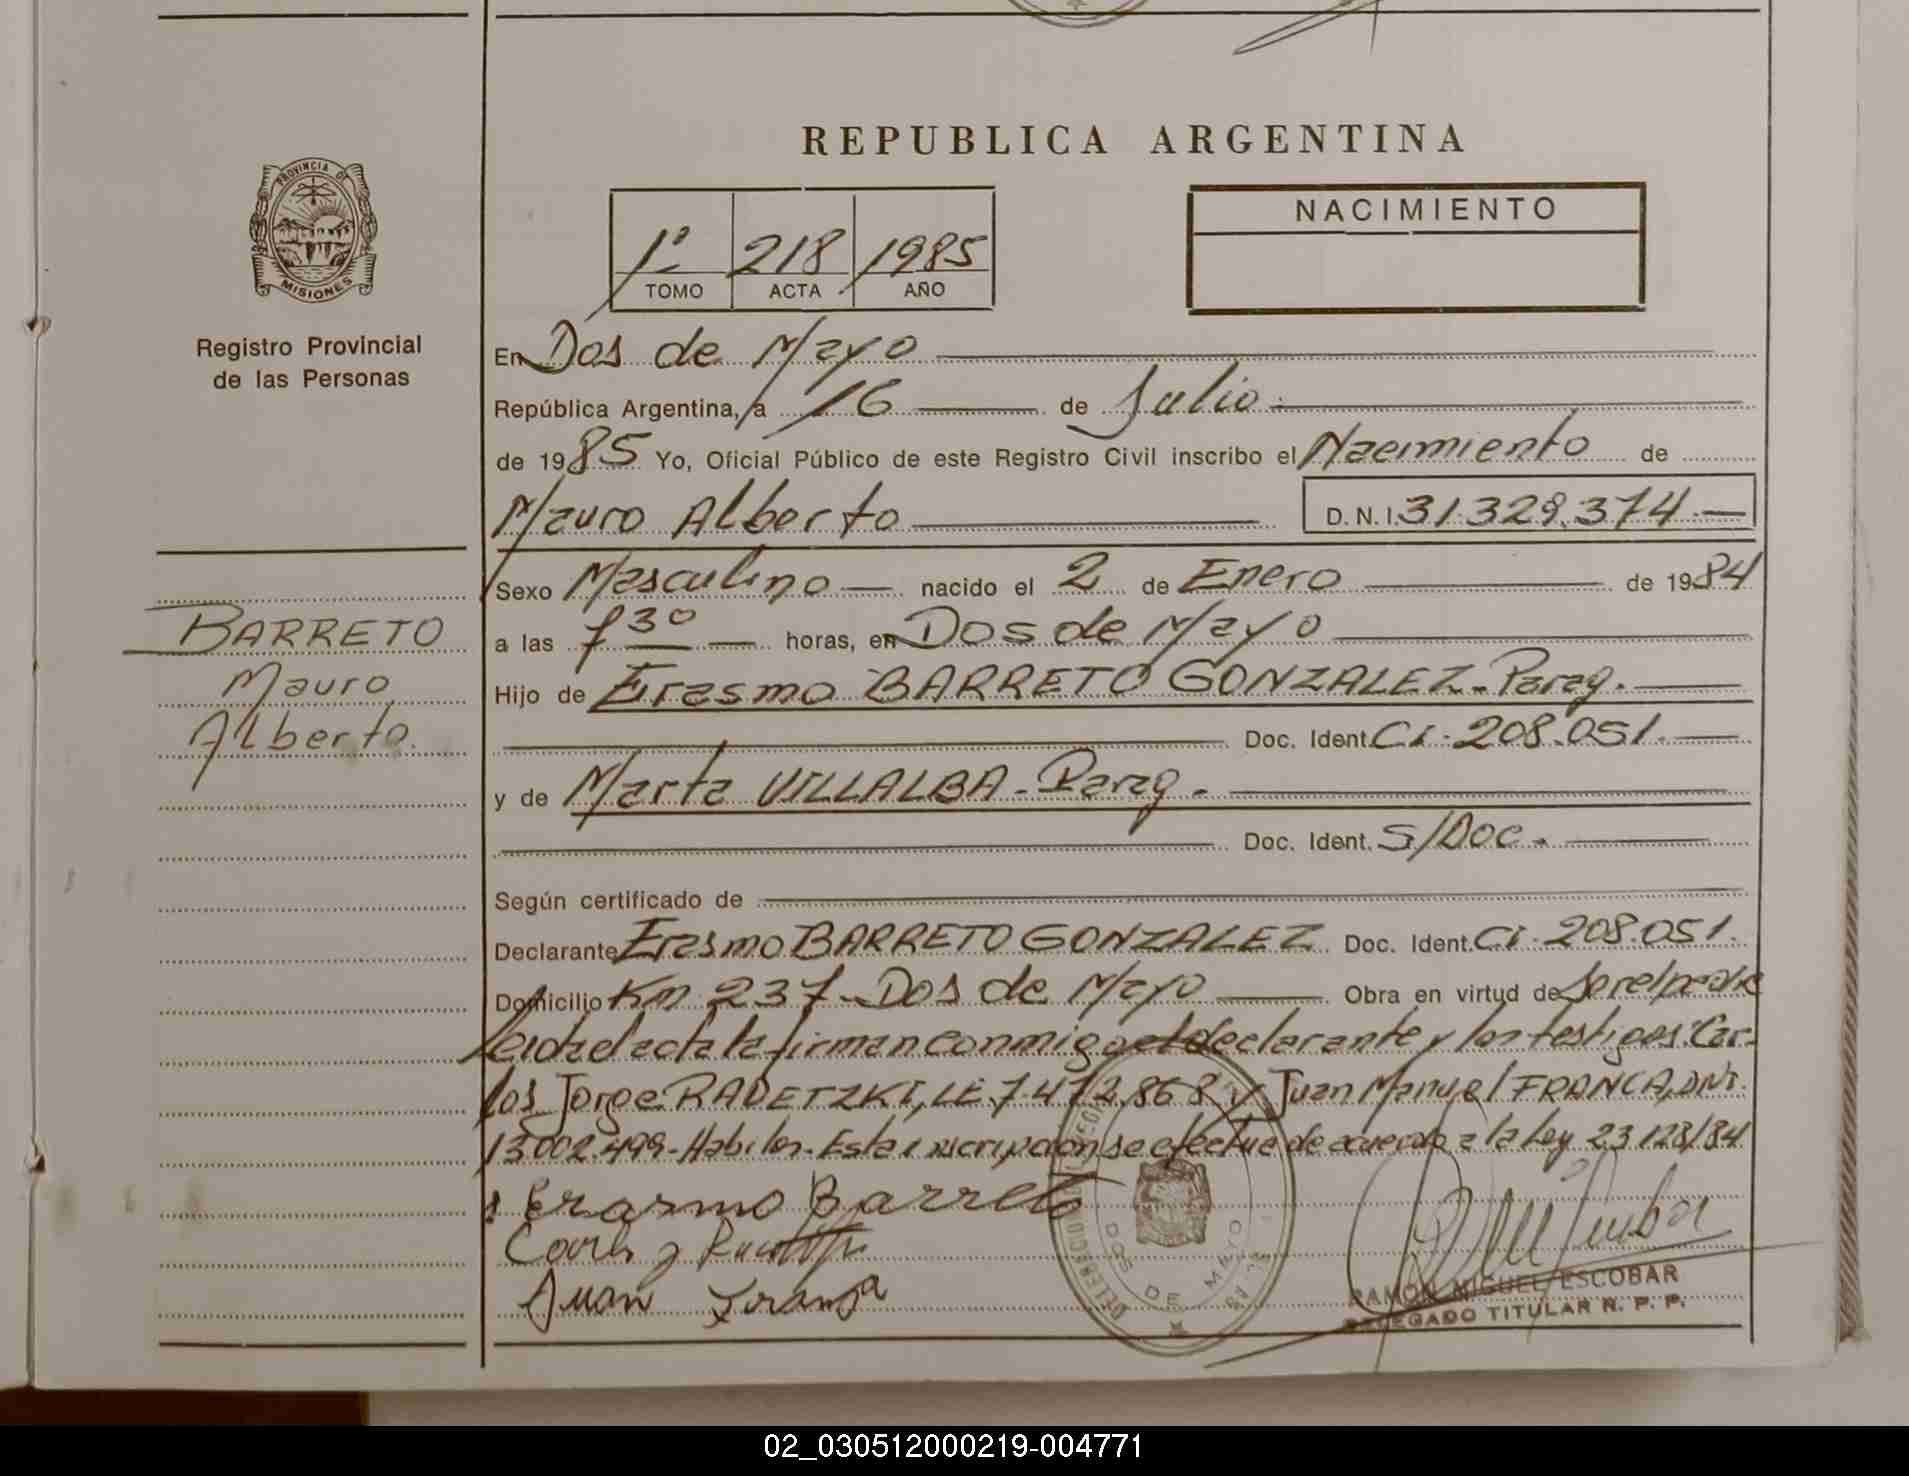 REPUBLICA ARGENTINA
PROVINCIA DE
MISIONES
Registro Provincial
de las Personas
1º 218 1985
TOMO ACTA AÑO
NACIMIENTO
En Dos de Mayo
República Argentina, a 16 de Julio
de 1985 Yo, Oficial Público de este Registro Civil inscribo el Nacimiento de
Mauro Alberto D.N.I. 31.329.374
Sexo Masculino nacido el 2 de Enero de 1984
a las 7 30 horas, en Dos de Mayo
Hijo de Erasmo BARRETO GONZALEZ - Parag.
Doc. Ident. Ci. 208.051.
y de Marta VILLALBA - Parag.
Doc. Ident. S/Doc.
Según certificado de
Declarante Erasmo BARRETO GONZALEZ Doc. Ident. Ci. 208.051.
Domicilio Km 237 - Dos de Mayo Obra en virtud de ser el padre
Leida el acta la firman conmigo el declarante y los testigos: Car-
los Jorge RADETZKI, LE. 7.472.868 y Juan Manuel FRANCA, DNI.
13.002.499 - Habiles - Esta inscripcion se efectua de acuerdo a la Ley 23.128/84
Erasmo Barreto
Juan Franca
BARRETO
Mauro
Alberto
DOS DE MAYO
RAMON MIGUEL ESCOBAR
DELEGADO TITULAR R. P. P.
02_030512000219-004771